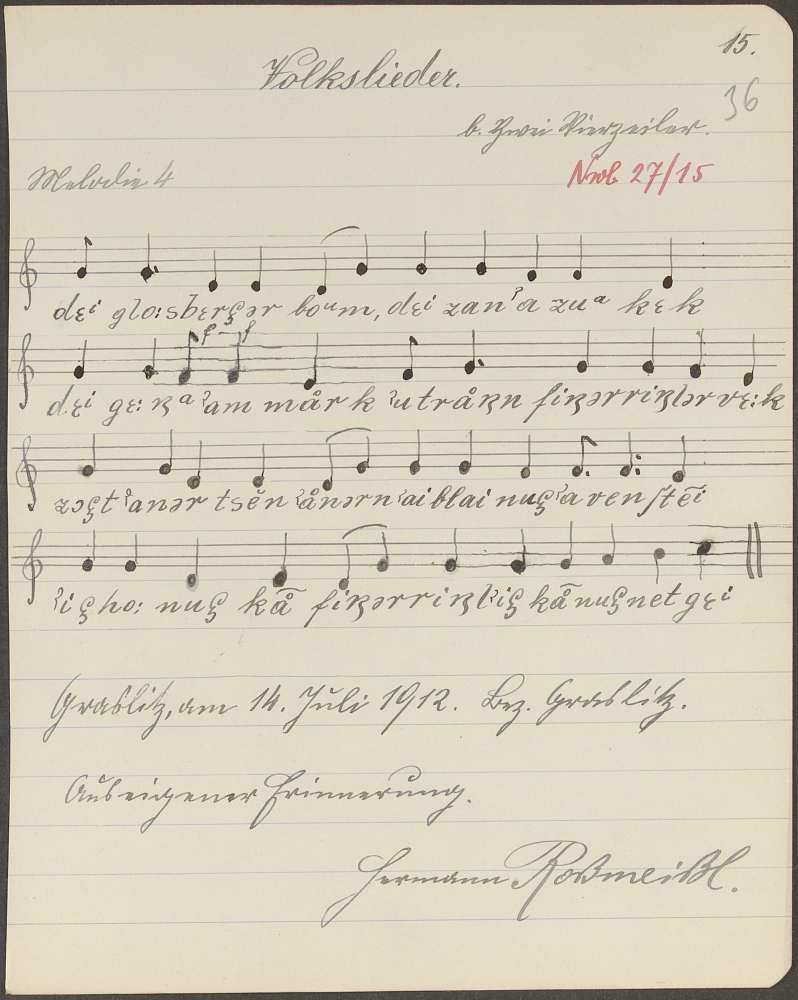 15.
Volkslieder.
36
b. Zwei Vierzeiler.
Melodie 4
27/15
dɛi glo:sbɛrʒər boum, dɛi zanˀa zuᵃ kɛk
f - f
dɛi gɛ: ʀᵃ ˀam mår k ˀutråʀn fiʀərriʀlər vɛ:k
zɔʒt ˀanər tsĕn ˀånərn ˀai blai nuʒ ˀa ven ʃtẽi
ˀiʒ ho: nuʒ kå̄ fiʀərriʀl ˀiʒ kå̄ nuʒ net gɛi
Graslitz, am 14. Juli 1912. Bez. Graslitz.
Aus eigener Erinnerung.
Hermann Roßmeißl.